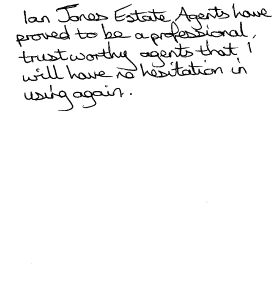 Ian Jones Estate Agents have
proved to be a professional,
trustworthy agents that I
will have no hesitation in
using again.